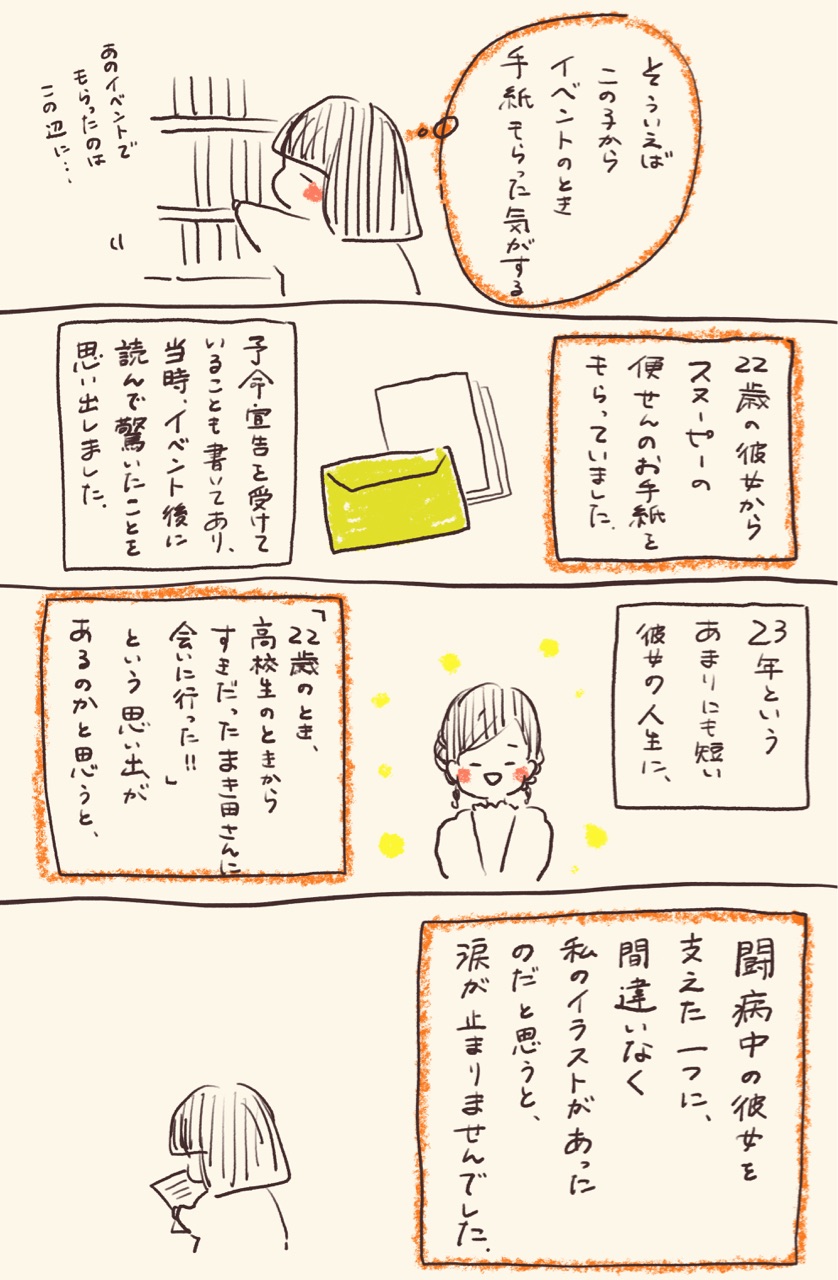 そういえば
この子から
イベントのとき
手紙もらった気がする
あのイベントで
もらったのは
この辺に…
22歳の彼女から
スヌーピーの
便せんのお手紙を
もらっていました.
予命宣告を受けて
いることも書いてあり、
当時、イベント後に
読んで驚いたことを
思い出しました.
23年という
あまりにも短い
彼女の人生に、
「22歳のとき、
高校生のときから
すきだったまき田さんに
会いに行った!!」
という思い出が
あるのかと思うと、
闘病中の彼女を
支えた一つに、
間違いなく
私のイラストがあった
のだと思うと、
涙が止まりませんでした.